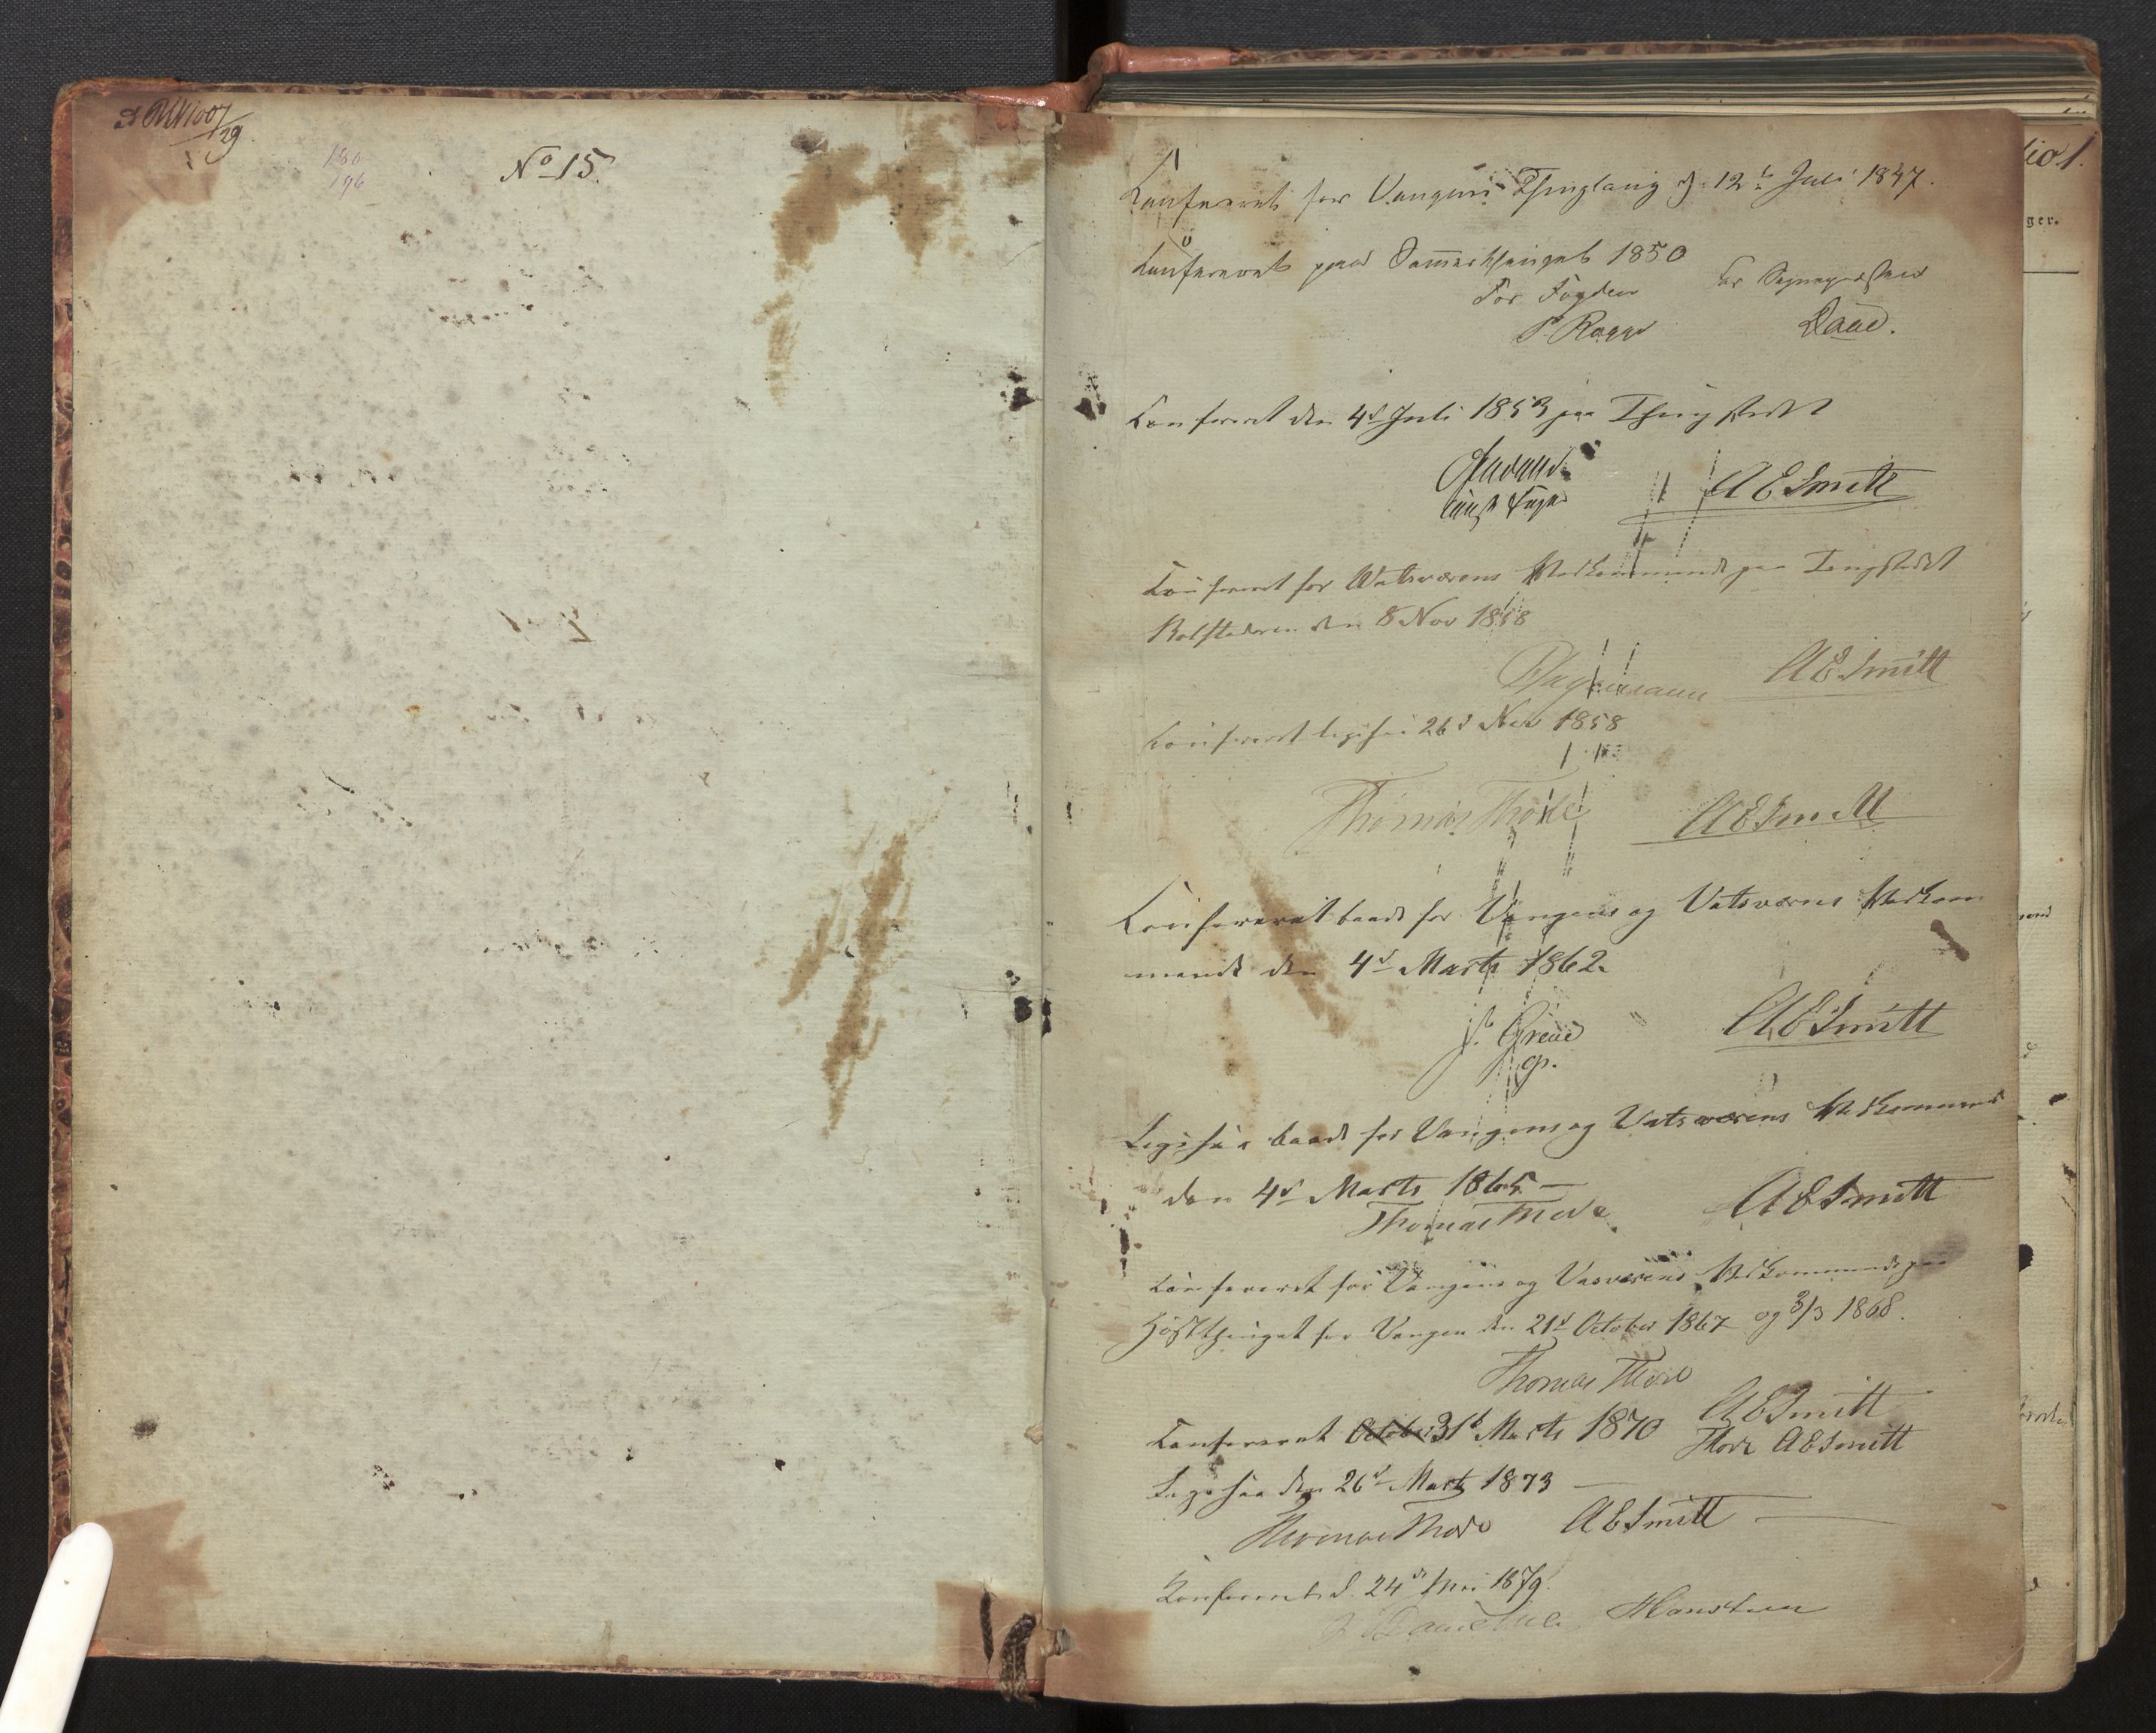 No 15.
180
196
Confereret for Vangens Thinglaug d. 12te Juli 1847.
Confereret paa Sommerthinget 1850
For Fogden
For Sorenskriveren
Daae.
Confereret den 4d Juli 1853 paa Thingstedet
const Foged
A E Smitt
Confereret for Vatsværens Vedkommende paa Tingstedet
Rolfstadøren den 8 Nov 1858
A E Smitt
Confereret ligesaa 26d Nov 1858
Thomas Thode
A E Smitt
Confereret baade for Vangens og Vatsværens Vedkom
mende den 4d Marts 1862.
J. Greve
A E Smitt
Ligesaa baade for Vangens og Vatsværens Vedkommende
den 4d Marts 1865 —
Thomas Thode
A E Smitt
Confereret for Vangens og Vasværens Vedkommende paa
Høstthinget for Vangen den 21d October 1867 og 3/3 1868.
Thomas Thode
A E Smitt
Confereret October 31te Marts 1870
Thode A E Smitt
Ligesaa den 26d Marts 1873 —
Thomas Thode A E Smitt
Confereret d. 24de Mai 1879.
Hansteen
lio 1.
ger.